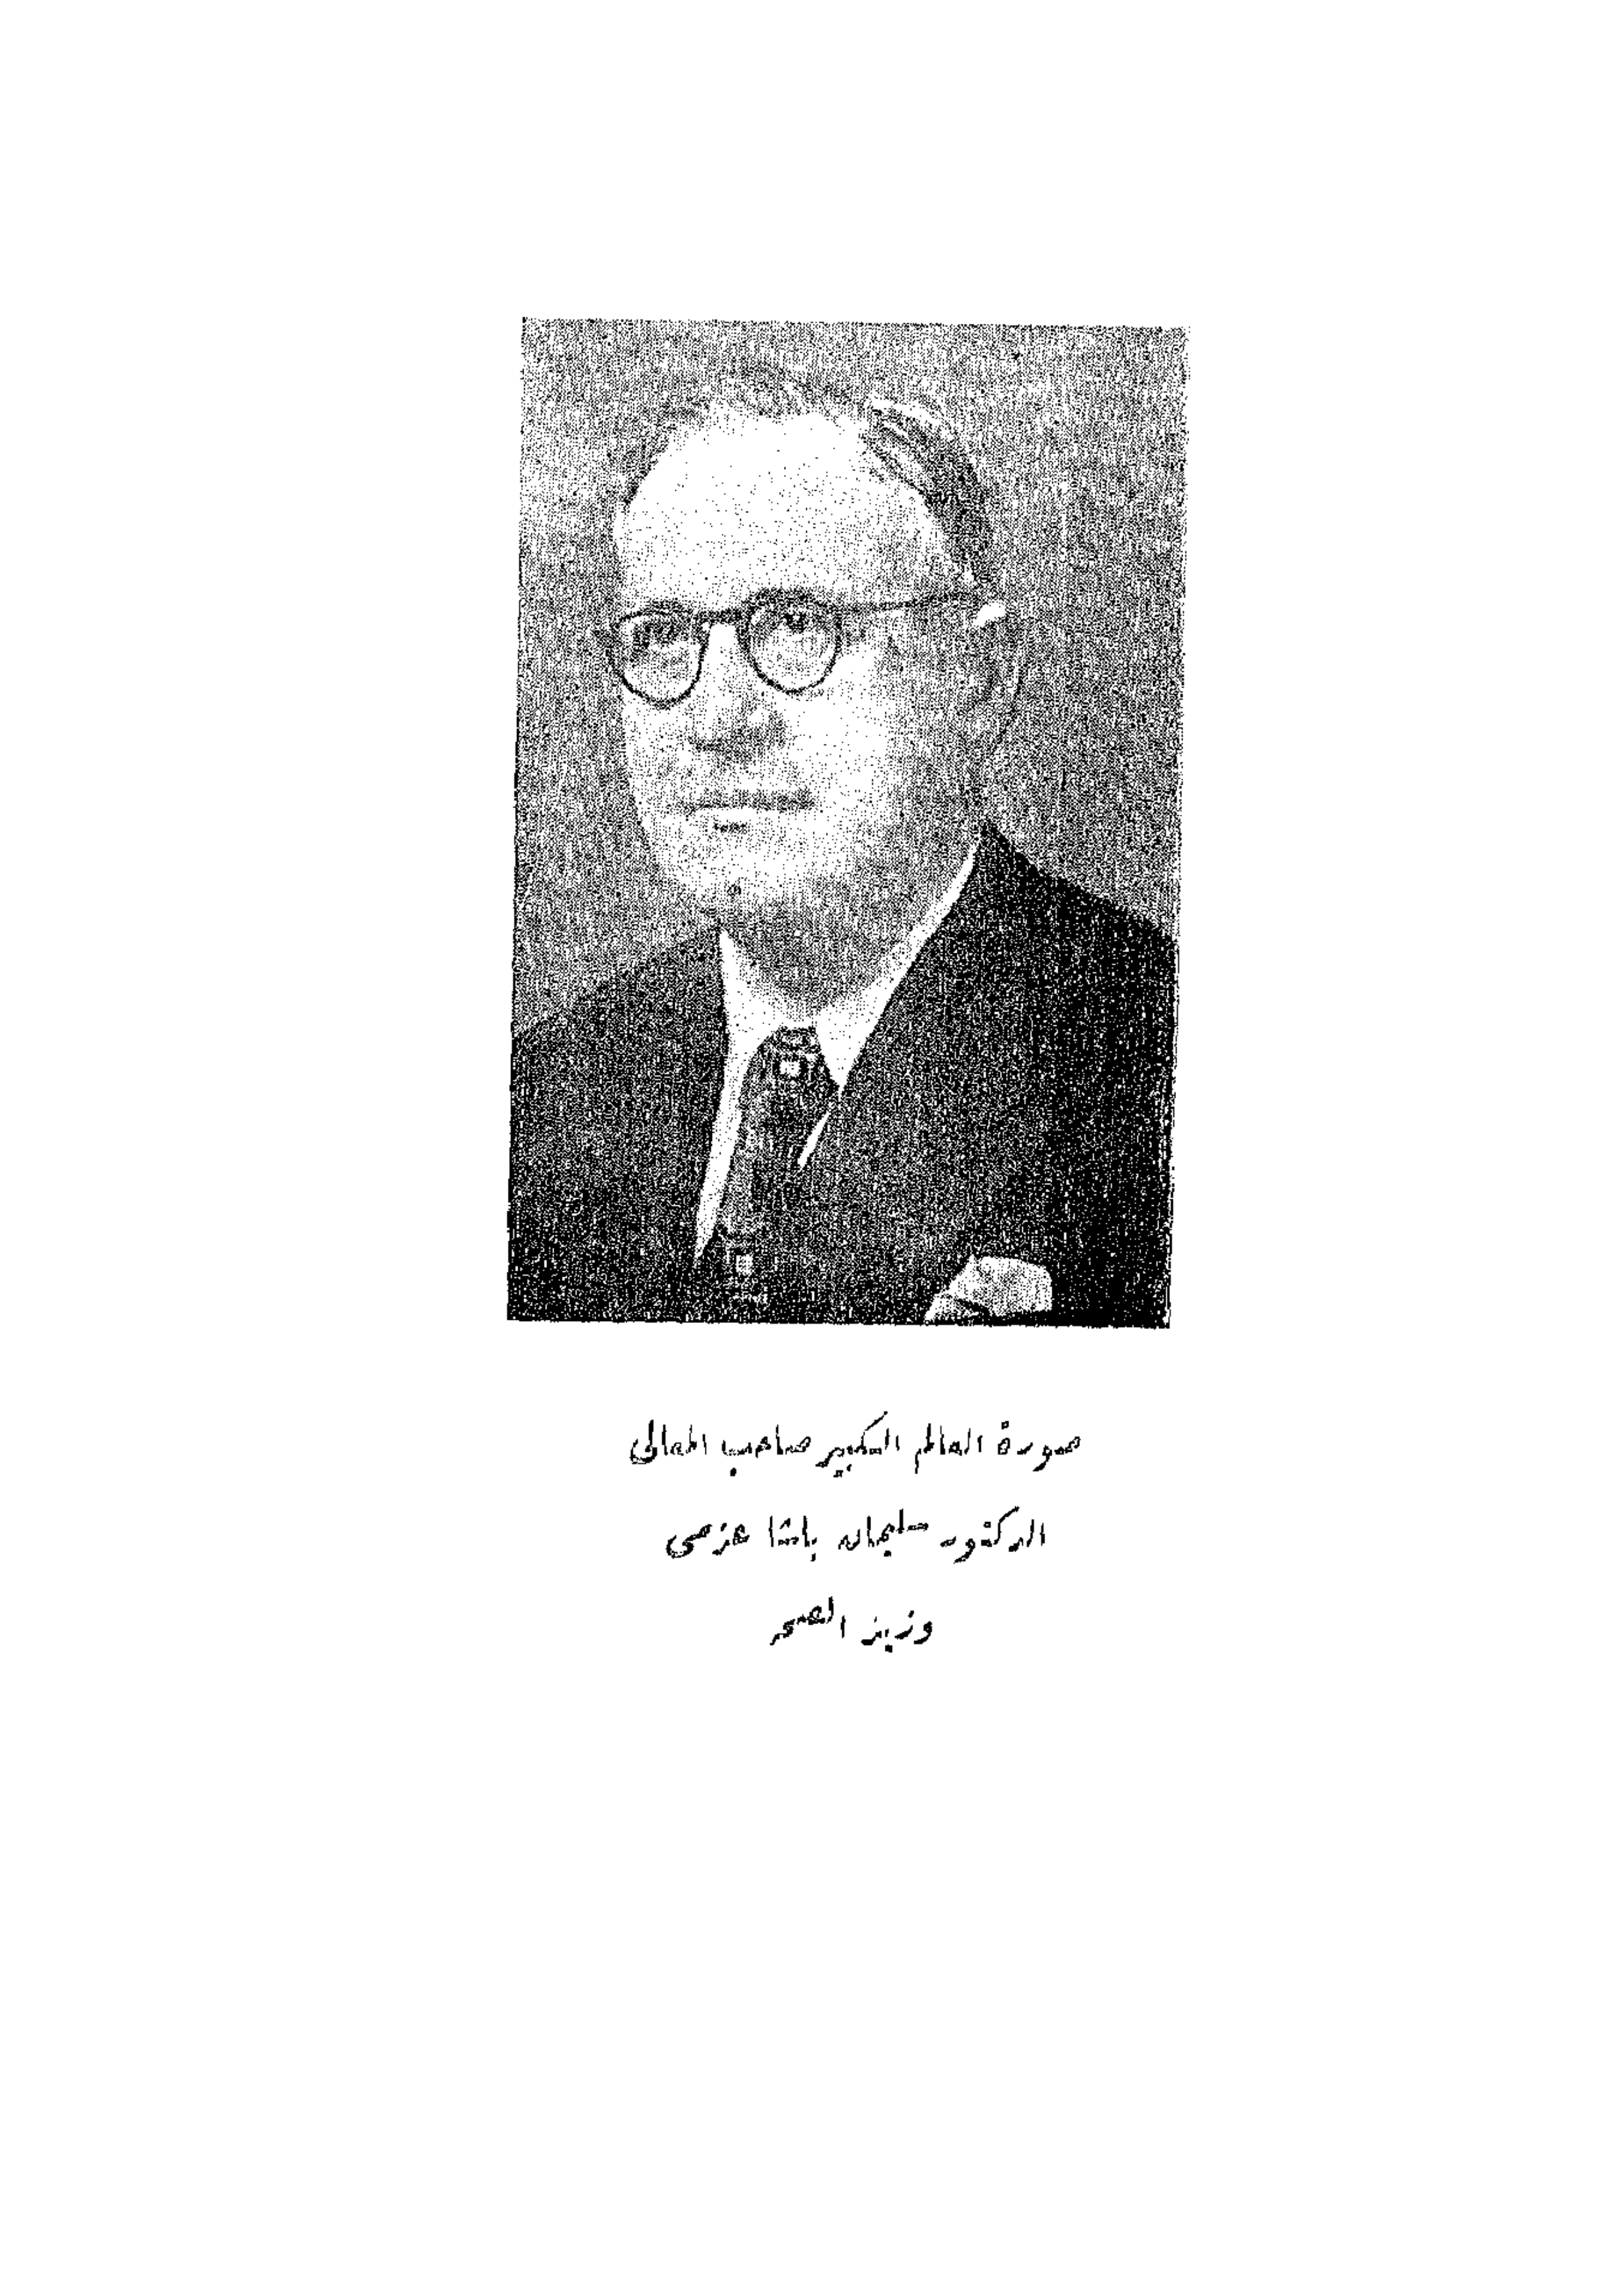 صورة العالم الكبير صاحب المعالى
الدكتور سليمان باشا عزمى
وزير الصحة